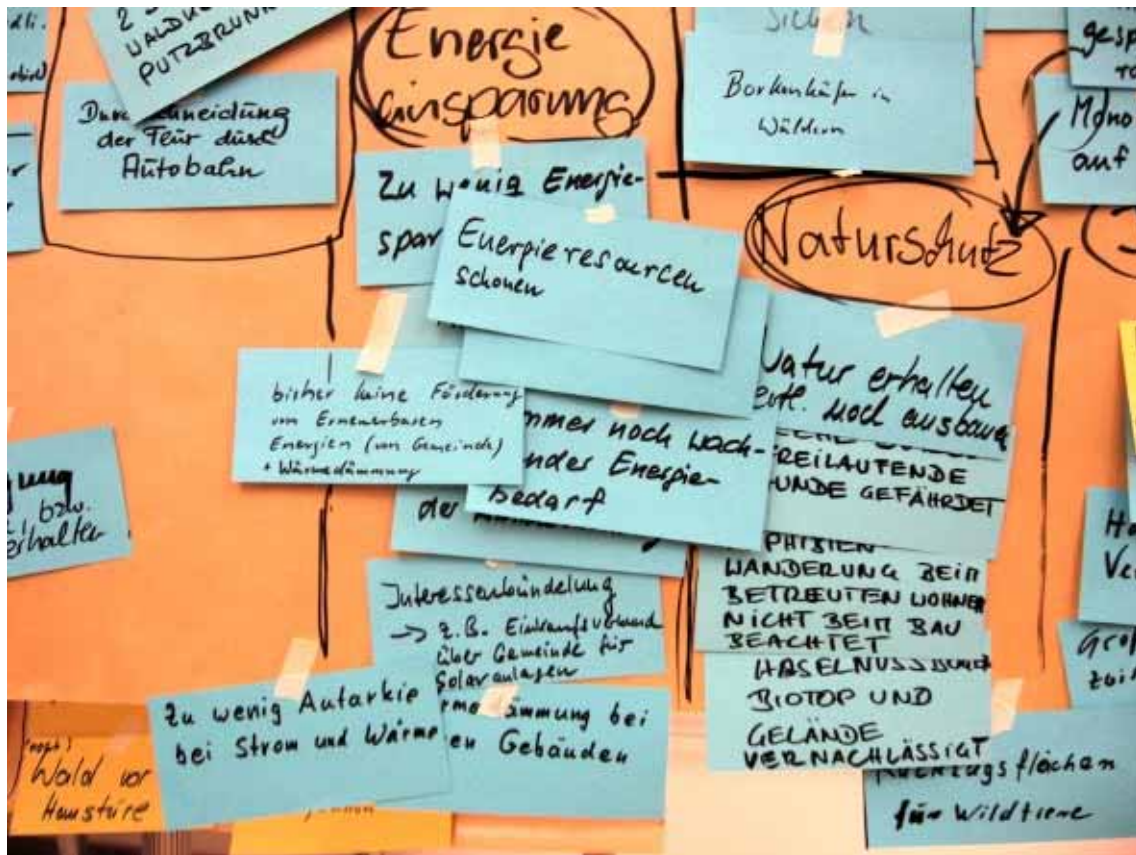 2
WALDK
PUTZBRUNN
Durchschneidung
der Flur durch
Autobahn
bzw.
erhalten
Wald vor
Haustüre
Energie
einsparung
Zu wenig Energie-
spar
Energieresourcen
schonen
bisher keine Förderung
von Erneuerbaren
Energien (von Gemeinde)
+ Wärmedämmung
mmer noch wach-
nder Energie-
bedarf
der
Interessenbündelung
→ z.B. Einkaufsverbund
über Gemeinde für
Solaranlagen
Zu wenig Autarkie
bei Strom und Wärme
ämmung bei
en Gebäuden
Borkenkäfer in
Wäldern
Naturschutz
Natur erhalten
evtl. noch ausbauen
REILAUFENDE
UNDE GEFÄHRDET
PHIBIEN
WANDERUNG BEIM
BETREUTEN WOHNEN
NICHT BEIM BAU
BEACHTET
HASELNUSS
BIOTOP UND
GELÄNDE
VERNACHLÄSSIGT
Rückzugsflächen
für Wildtiere
gesp
Mono
auf
Ha
Ve
Groß
zwi